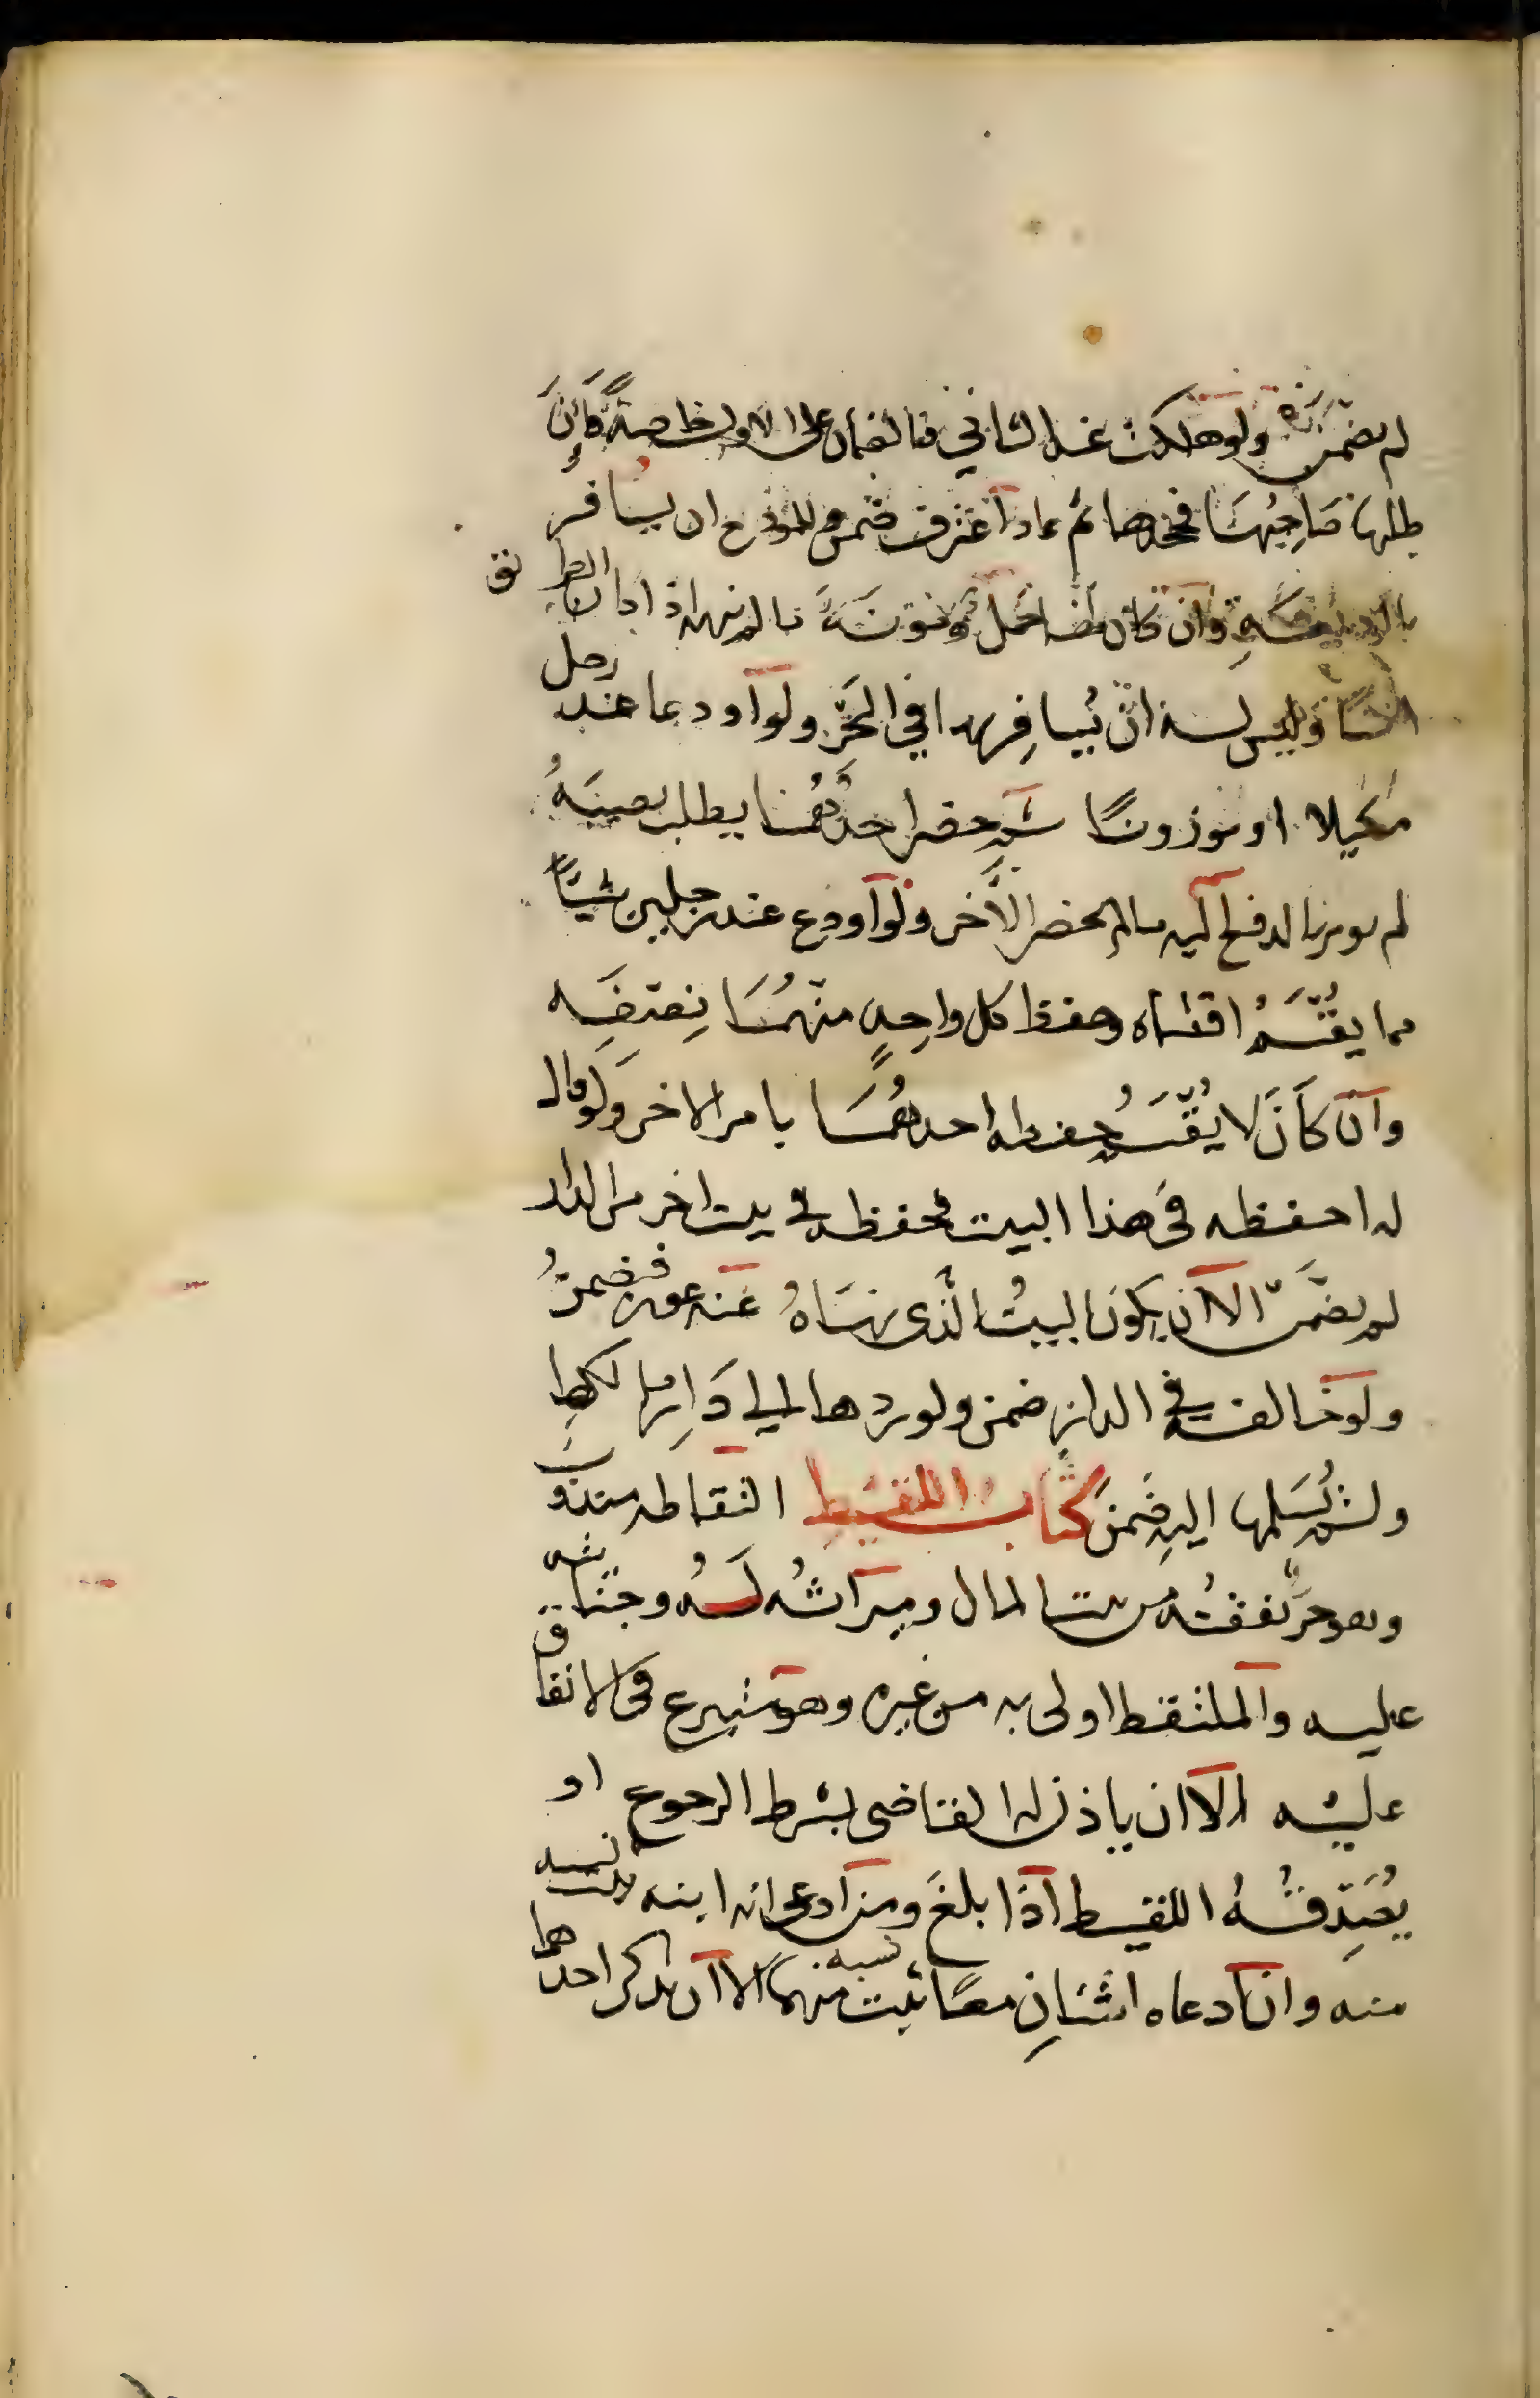 لم يضمن ولو هلكت عند الثاني فالضمان على الاول خاصةً فان
طلبها صَاحِبُهَا فجحدها ثم عاد اعترف ضمن وللمودَع ان يسافر
بالوديعةِ وان كان لها حملٌ ومؤنَةٌ ما لم ينهه اذا كان الطريق
وليس له ان يُسافِر بها في البَحْر ولو اودعا عند رجل
مكيلا او موزونًا ثم حضر احدُهُمَا يطلب نصيبَهُ
لم يومر بالدفع اليه مالم يحضر الآخر ولو اودع عند رجلين شيئًا
مما يقُسَمُ اقتسماه وحفظ كل واحِدٍ منهُمَا نِصفَه
وان كَانَ لا يُقسَمُ حفظه احدهُمَا بامر الاخر ولو قال
له احفظه في هذا البيت فحفظه في بيت اخر من الدار
لم يضمَن الا ان يكون البيتُ الذى نهَاهُ عنه عورة فضمنُ
ولو خالفه في الدار ضمن ولو ردها الى دَارِ مالكها
ولم يُسَلمها اليهِ ضَمنَ كتاب اللقيطِ التقاطه مندوب
وهو حرٌ نفقتُه من بيت المال وميراثُه لَهُ وجنايته
عليه والملتقط اولى به من غيره وهو متبرع في الانفاق
عليه الا ان ياذن له القاضى بشرط الرجوع او
يُصَدِقُهُ اللقيط اذا بلغَ ومن ادعى انه ابنه يثبت نسبه
منه وان ادعاه اثنَانِ معًا ثبت نسبه منهما الا ان يذكر احدهما